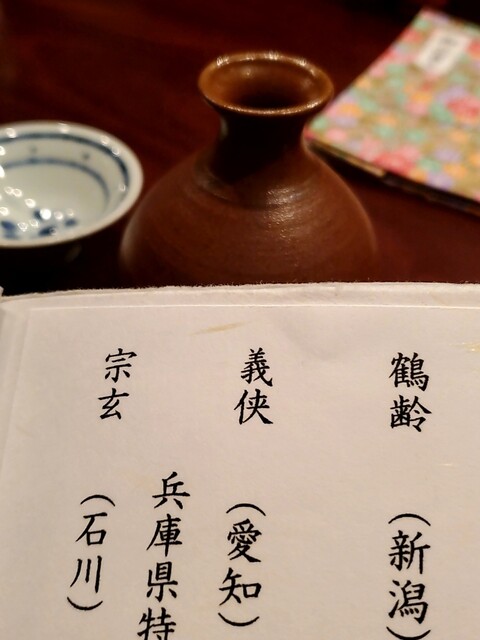 鶴齢
（新潟）
義侠
（愛知）
兵庫県特
宗玄
（石川）